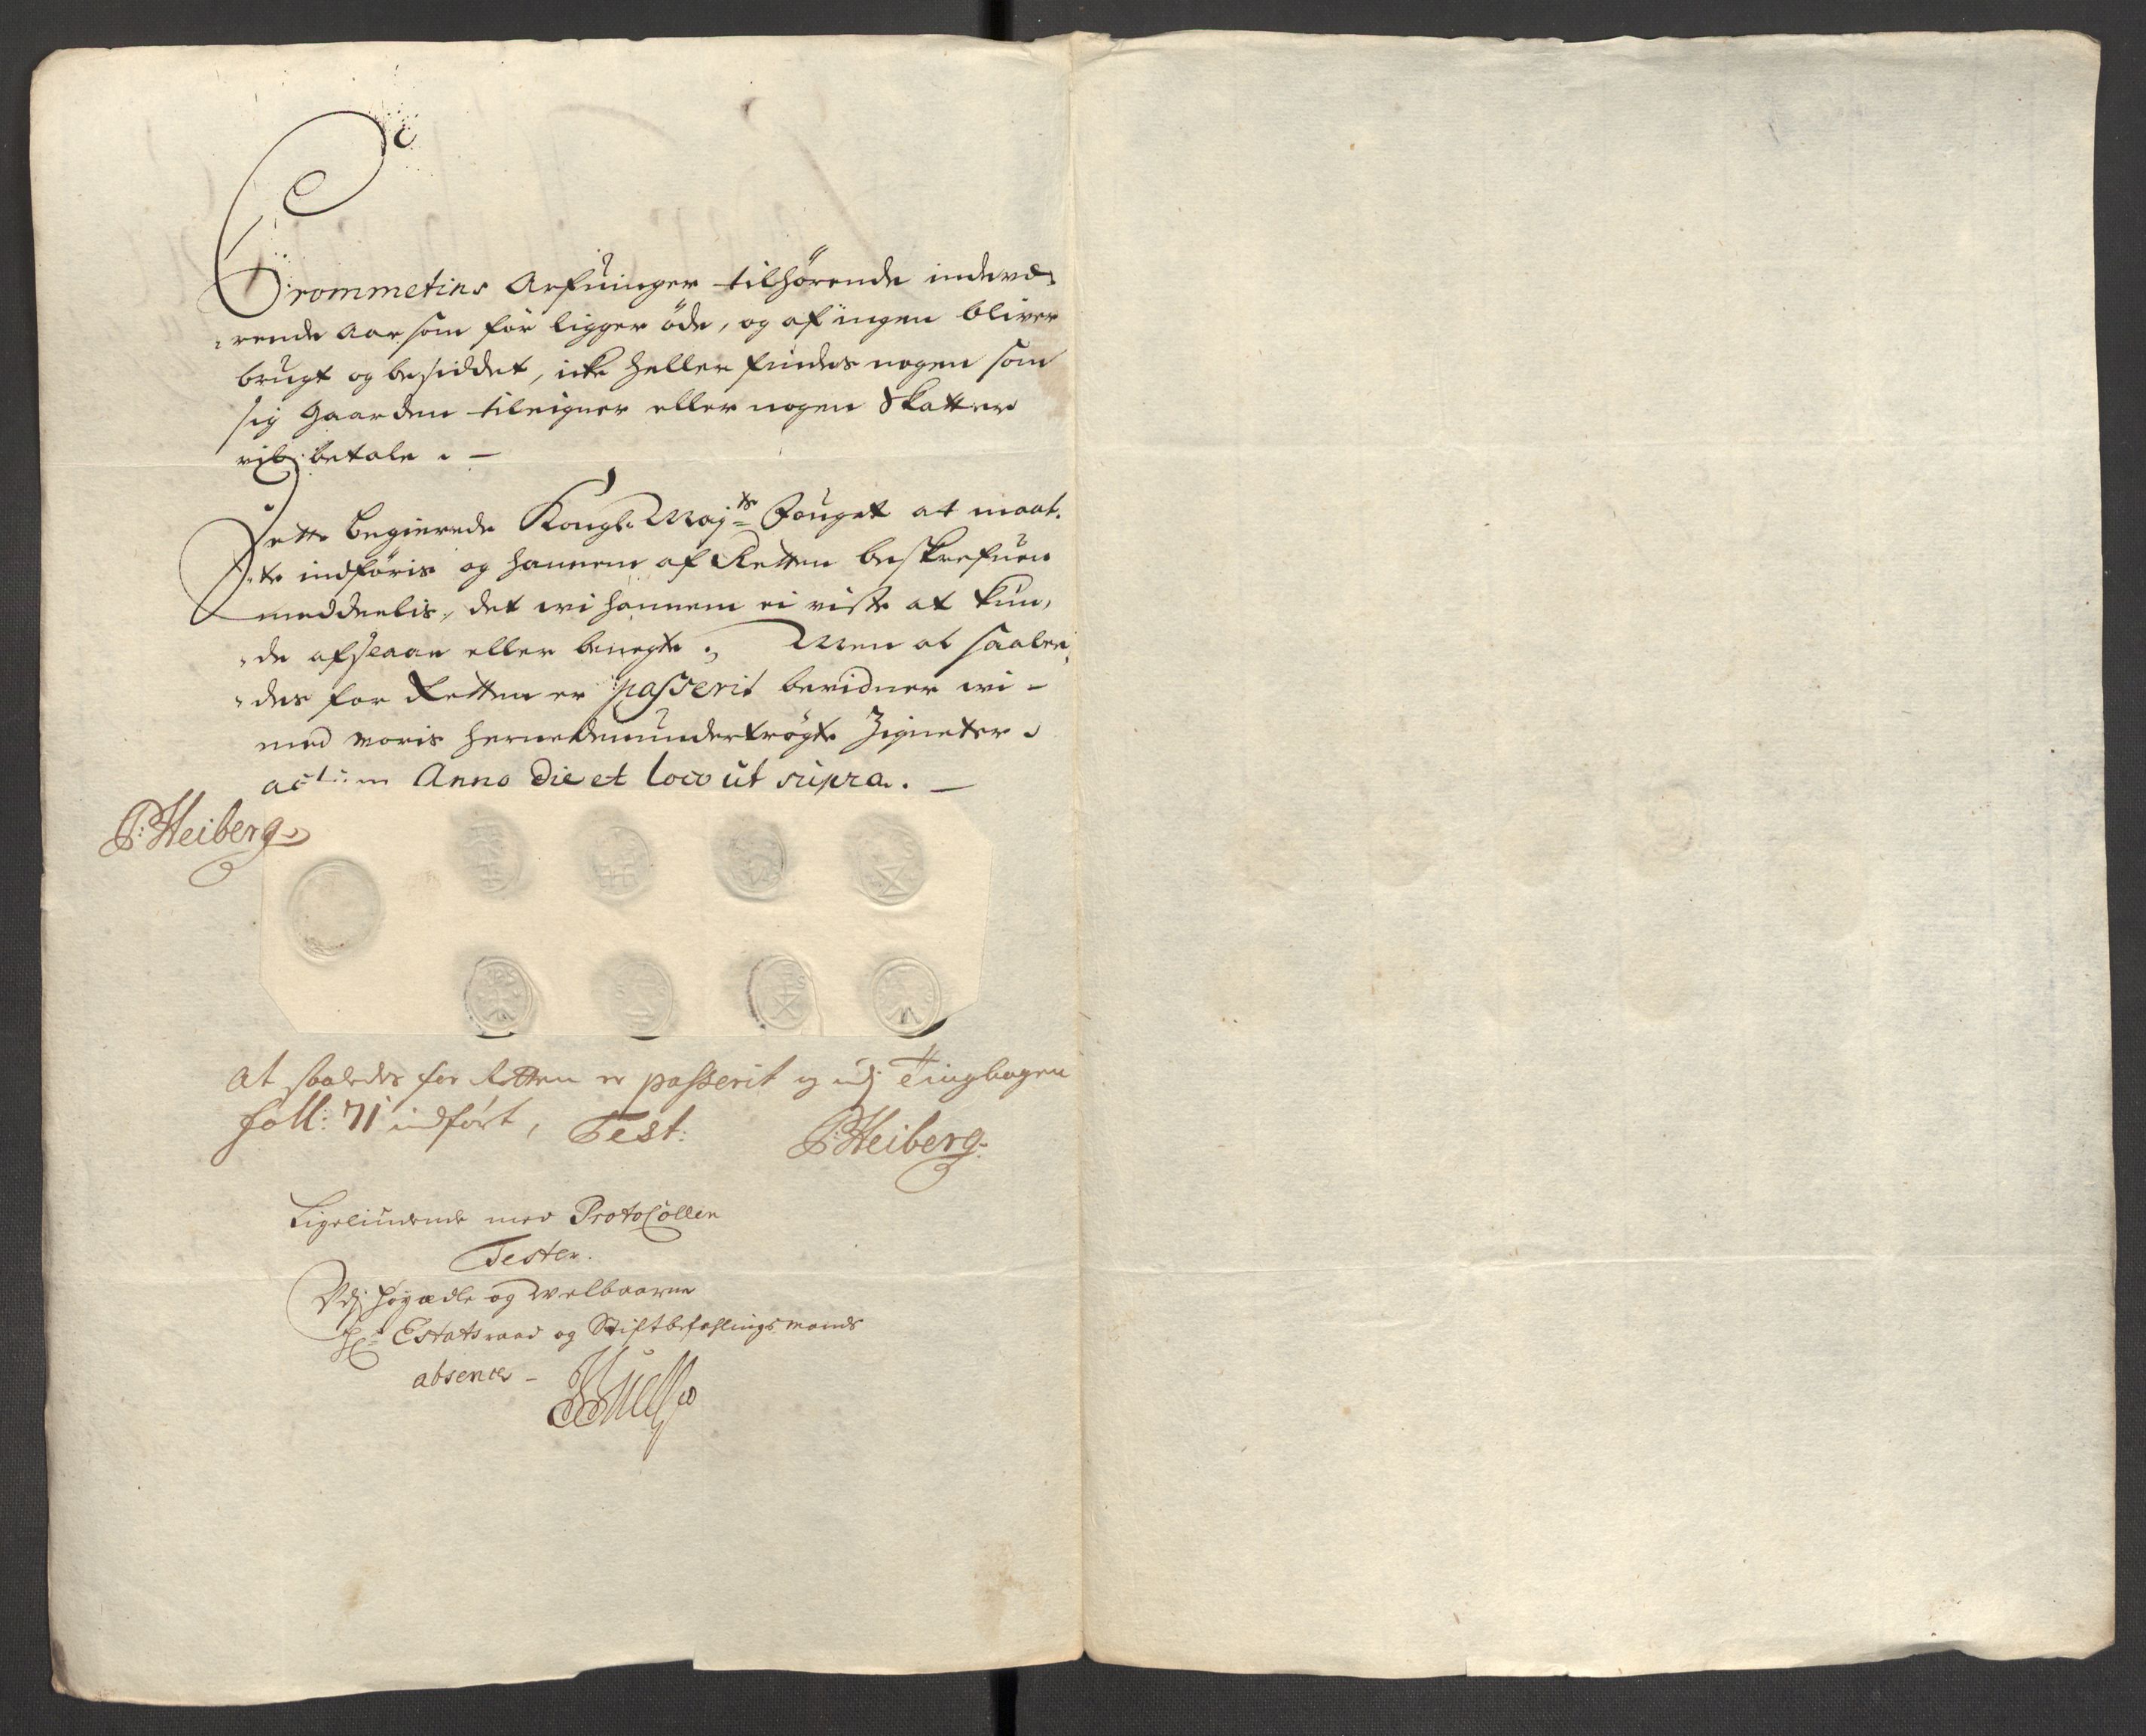 Trommetins Arfuinger tilhørende indevæ-
rende Aar som før ligger øde, og af ingen bliver
brugt og besiddet, icke heller findes nogen som
sig Gaarden tileigner eller nogen Skatter
vil betale. —
Dette begierede Kongl. Maj.ts Fouget at maat-
te indføris og hannem af Retten beskrefuen
meddeelis, det wi hannem ei viste at kun-
de afslaae eller benegte; Men at saalee-
des for Retten er passerit bevidner wi -
med voris hernedenundertrøgte Zigneter.
actum Anno die et loco ut supra. —
P: Heiberg
At saaledes for Retten er passerit og udj Tingbogen
foll: 71 indført, Test:
P: Heiberg.
Ligeliudende med Protocollen
Tester.
Udj høyædle og welbaarne
Hr. Estatsraad og Stiftbefahlingsmands
absence -